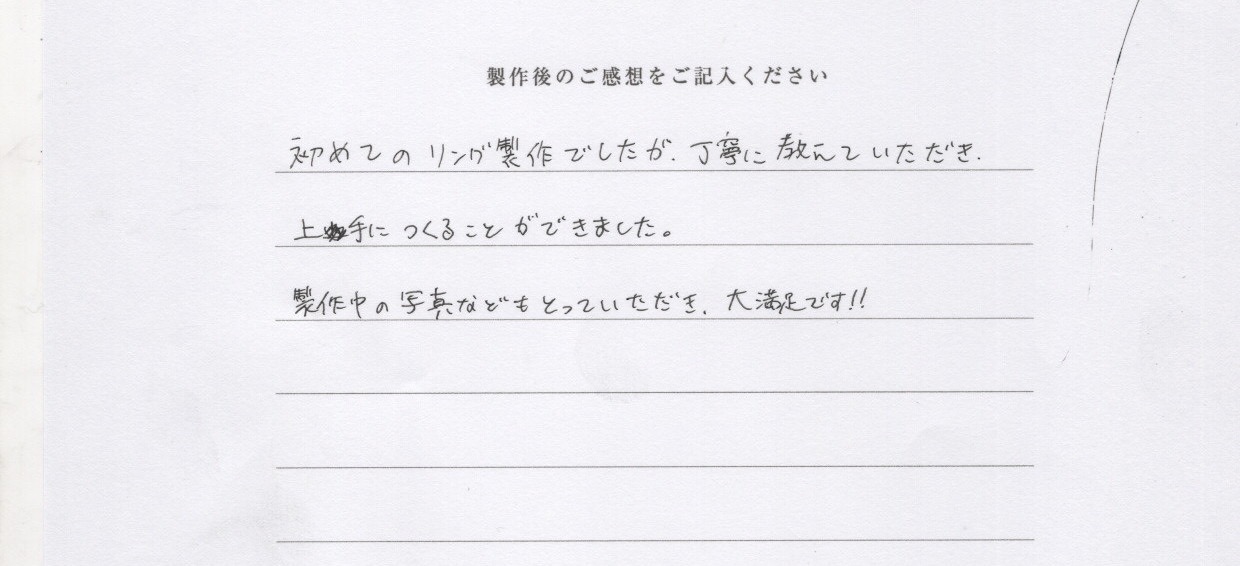 製作後のご感想をご記入ください
初めてのリング製作でしたが、丁寧に教えていただき、
上手につくることができました。
製作中の写真などもとっていただき、大満足です!!